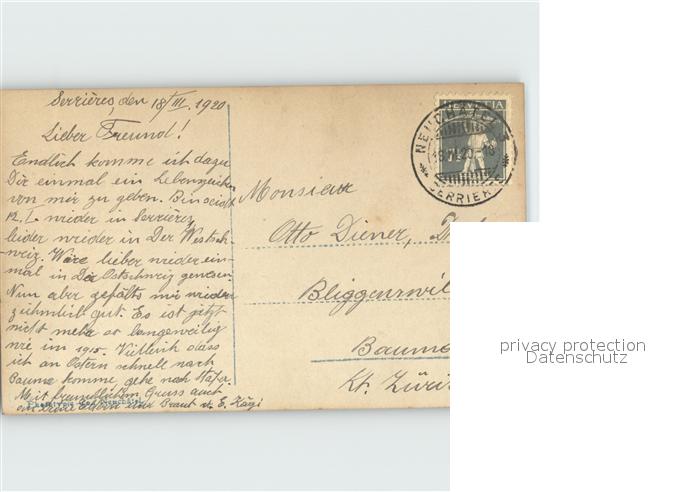 Serrières, den 18/III. 1920
Lieber Freund!
Endlich komme ich dazu
Dir einmal ein Lebenzeichen
von mir zu geben. Bin seit
12. I. wieder in Serrières,
leider wieder in Der Westsch-
weiz. Wäre lieber wieder ein-
mal in Die Ostschweiz gewesen
Nun aber gefällts mir wieder
ziehmlich gut. Es ist jetzt
nicht mehr so langweilig
wie im 1915. Vielleich dass
ich an Ostern schnell nach
Bauma komme, gehe nach
Mit freundlichem Gruss auch
Eltern und Braut v. E. Kägi
HELVETIA
NEUCHATEL
18.III.20
SERRIERES
Monsieur
Otto Diener,
Bliggenswil
Bauma
Kt. Züri
privacy protection
Datenschutz